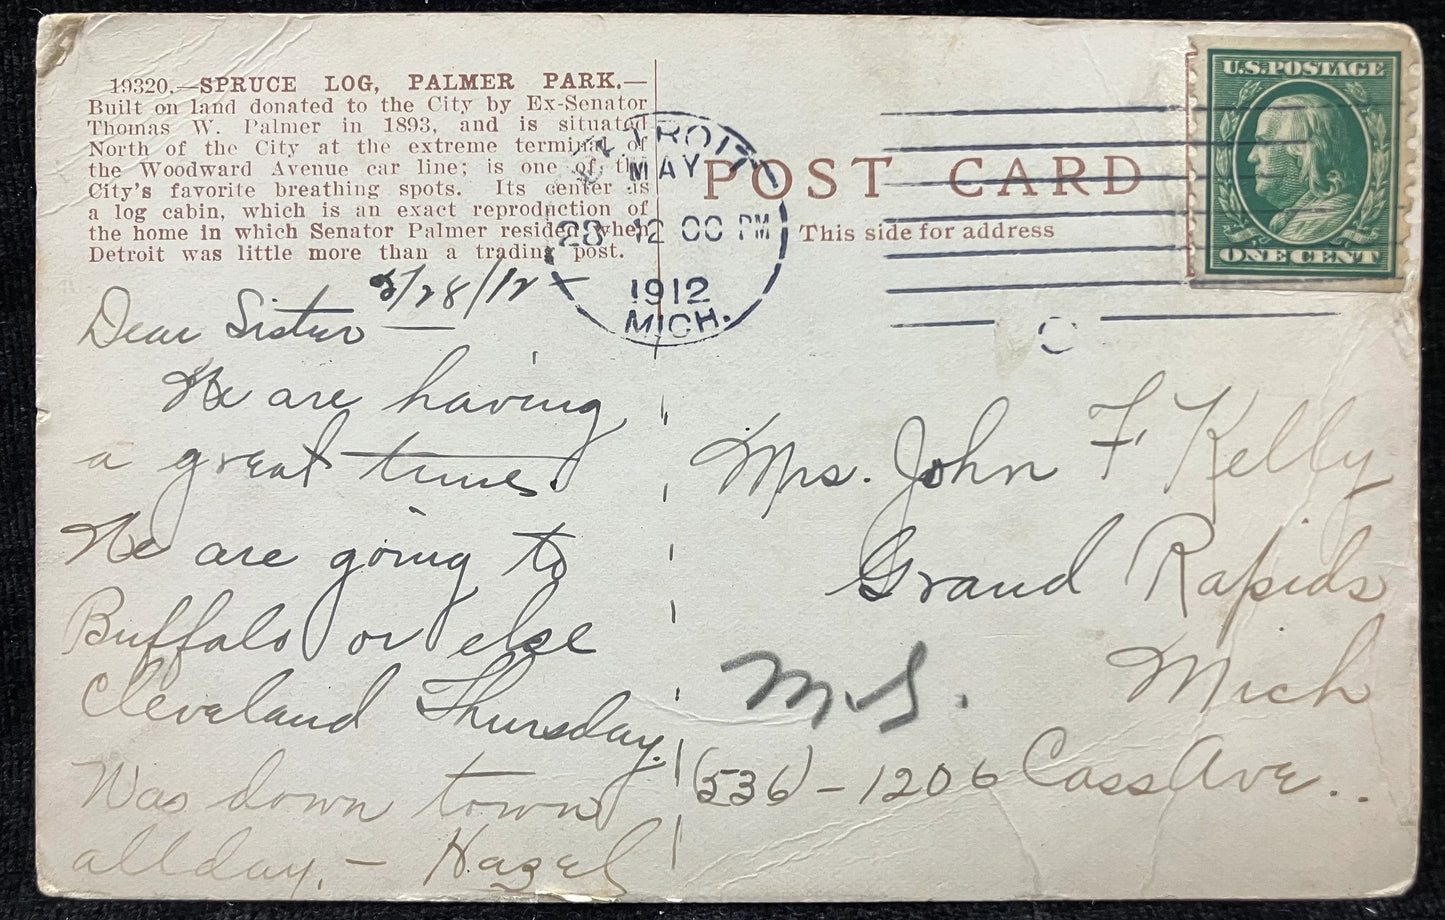 19320.—SPRUCE LOG, PALMER PARK.—
Built on land donated to the City by Ex-Senator
Thomas W. Palmer in 1893, and is situated
North of the City at the extreme terminal of
the Woodward Avenue car line; is one of the
City's favorite breathing spots. Its center is
a log cabin, which is an exact reproduction of
the home in which Senator Palmer resided when
Detroit was little more than a trading post.
DETROIT
MAY
28 12 00 PM
1912
MICH.
POST CARD
This side for address
U.S. POSTAGE
ONE CENT
5/28/12 -
Dear Sister —
We are having
a great time.
We are going to
Buffalo or else
Cleveland Thursday.
Was down town
all day. — Hazel
Mrs. John F Kelly
Grand Rapids
Mich
(536) - 1206 Cass Ave..